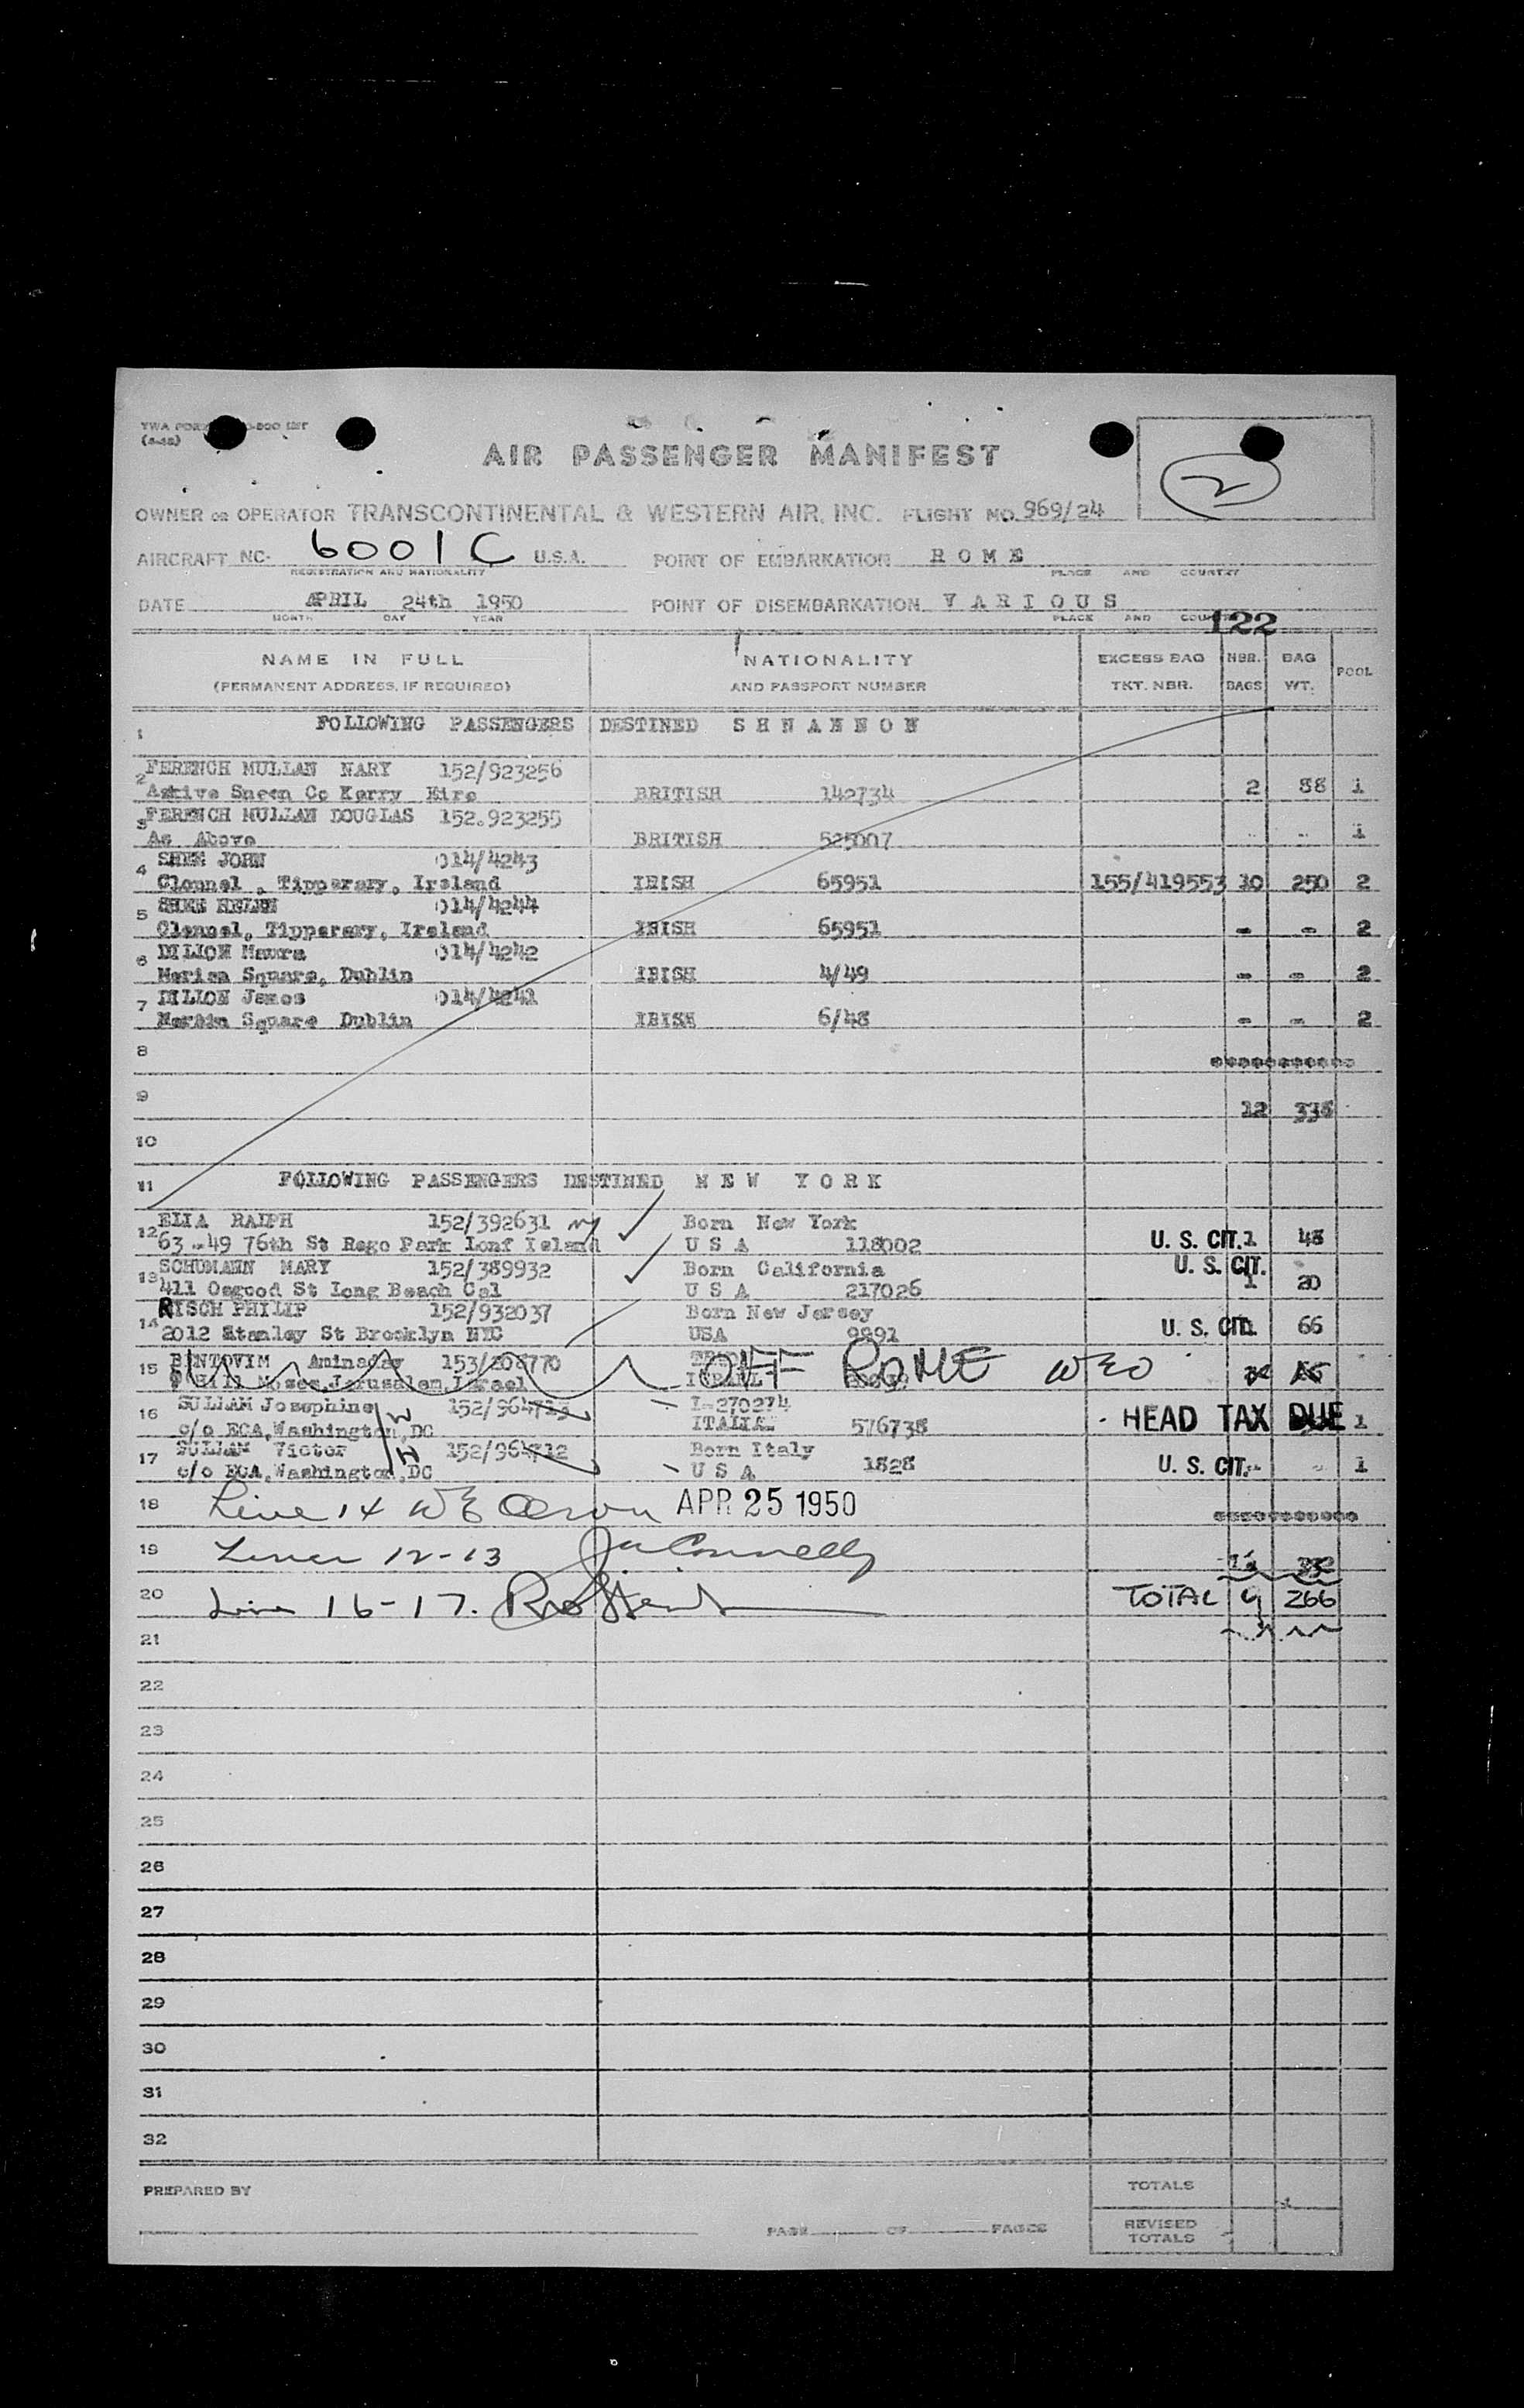 TWA FORM
AIR PASSENGER MANIFEST
2
OWNER OR OPERATOR TRANSCONTINENTAL & WESTERN AIR, INC. FLIGHT NO. 969/24
AIRCRAFT NC- 6001C U.S.A. POINT OF EMBARKATION R O M E
REGISTRATION AND NATIONALITY PLACE AND COUNTRY
DATE APRIL 24th 1950 POINT OF DISEMBARKATION V A R I O U S
MONTH DAY YEAR PLACE AND COUNTRY
122
NAME IN FULL NATIONALITY EXCESS BAG NBR. BAG POOL
(PERMANENT ADDRESS, IF REQUIRED) AND PASSPORT NUMBER TKT. NBR. BAGS WT.
1 FOLLOWING PASSENGERS DESTINED S H N A N N O N
2 FERENCH MULLAN NARY 152/923256
Eire BRITISH 142734 2 88 1
3 FERENCH MULLAN DOUGLAS 152.923255
As Above BRITISH 525007 - - 1
4 SHEE JOHN 014/4243
Clonnel , Tipperary, Ireland IRISH 65951 155/419553 10 250 2
5 SHEE HELEN 014/4244
Clonnel, Tipperary, Ireland IRISH 65951 - - 2
6 DILLON Maura 014/4242
Square, Dublin IRISH 4/49 - - 2
7 DILLON James 014/4241
Square Dublin IRISH 6/48 - - 2
8
9 12 338
10
11 FOLLOWING PASSENGERS DESTINED N E W Y O R K
12 ELIA RALPH 152/392631 Born New York
63-49 76th St Rego Park Lonf Island U S A 118002 U. S. CIT. 1 48
13 SCHUMANN MARY 152/389932 Born California U. S. CIT.
411 Osgood St Long Beach Cal U S A 217026 1 20
14 RISCH PHILIP 152/932037 Born New Jersey
2012 Stanley St Brooklyn NYC USA 9891 U. S. CIT. 66
15 BENTOVIM Aminadav 153/208770 OFF ROME
Hill Moses, Jerusalem, Israel ISRAEL
16 SULLAM Josephine W 152/964713 I-270274
c/o ECA, Washington, DC ITALIAN 576738 HEAD TAX DUE 1
17 SULLAM Victor H 152/964712 Born Italy
c/o ECA, Washington, DC U S A 1828 U. S. CIT. - - 1
18 Line 14 APR 25 1950
19 Lines 12-13 Connelly
20 Line 16-17. TOTAL 266
21
22
23
24
25
26
27
28
29
30
31
32
PREPARED BY TOTALS
PAGE OF PAGES REVISED TOTALS